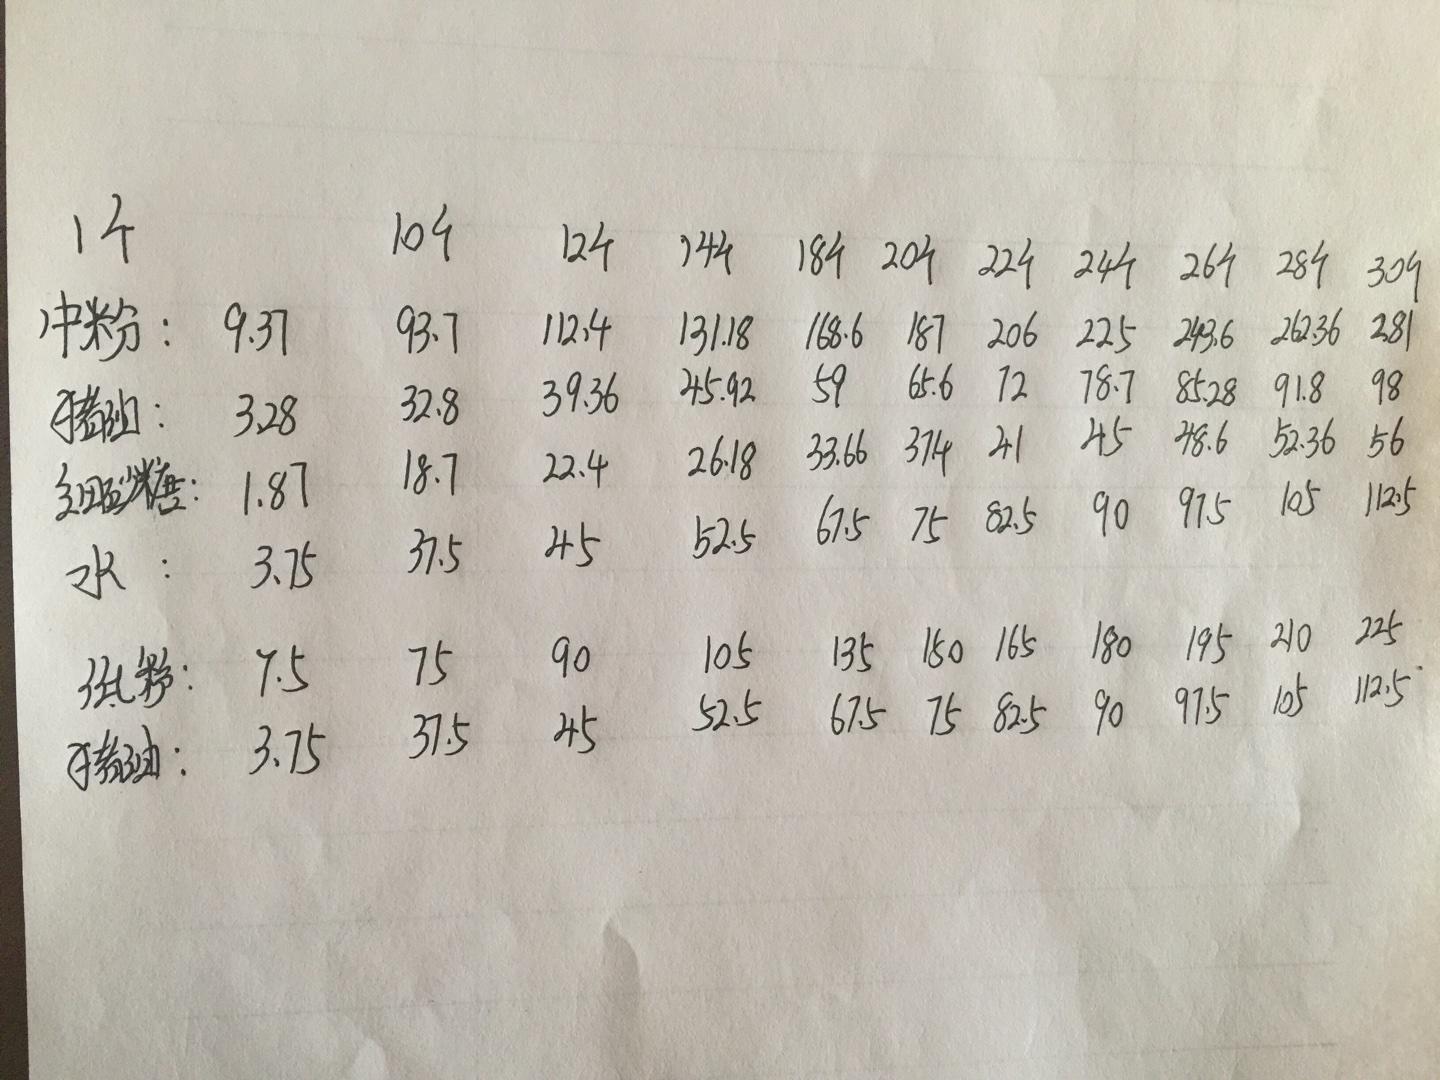 1个 10个 12个 14个 18个 20个 22个 24个 26个 28个 30个
中粉: 9.37 93.7 112.4 131.18 168.6 187 206 225 243.6 262.36 281
猪油: 3.28 32.8 39.36 45.92 59 65.6 72 78.7 85.28 91.8 98
细砂糖: 1.87 18.7 22.4 26.18 33.66 37.4 41 45 48.6 52.36 56
水: 3.75 37.5 45 52.5 67.5 75 82.5 90 97.5 105 112.5
低粉: 7.5 75 90 105 135 150 165 180 195 210 225
猪油: 3.75 37.5 45 52.5 67.5 75 82.5 90 97.5 105 112.5